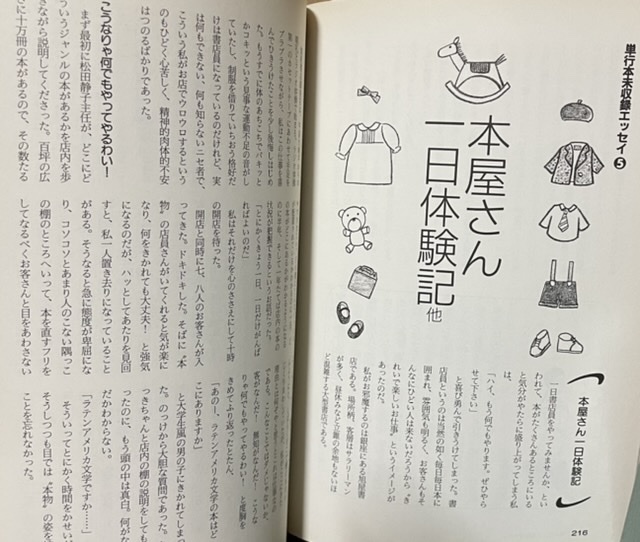 単行本未収録エッセイ❺
本屋さん
一日体験記 他
本屋さん一日体験記
一日書店員をやってみませんか、とい
われて、本がたくさんあるところにいる
と気分がやたらに盛り上がってしまう私
は、
「ハイ、何でもやります。ぜひやら
せて下さい」
と喜び勇んで引きうけてしまった。書
店員というのは当然の如く毎日毎日本に
囲まれ、雰囲気も明るく、お客さんもそ
んなにひどい人は来ないだろうから〝き
れいで楽しいお仕事〟というイメージが
あったのだ。
私がお邪魔するのは銀座にある旭屋書
店である。場所柄、客層はサラリーマン
が多く、昼休みなど立錐の余地もないほ
ど混雑する大型書店である。
216
んでひきうけたことを少し後悔しはじめ
た。もうすでに体のあちこちでパキッと
かコキッという見事な運動不足の音がし
ていたし、制服を借りていちおう格好だ
けは書店員になっているのだけれど、実
は何もできない、何も知らないニセ者で、
こういう私がお店でウロウロするという
のもひどく心苦しく、精神的肉体的不安
はつのるばかりであった。
こうなりゃ何でもやってやるわい!
まず最初に松田静子主任が、どこにど
ういうジャンルの本があるかを店内を歩
きながら説明してくださった。百坪の広
さに十万冊の本があるので、その数たる
状況が把握できるというお話だった。
「とにかくきょう一日、一日だけがんば
ればよいのだ」
私はそれだけを心のささえにして十時
の開店を待った。
開店と同時に七、八人のお客さんが入
ってきた。ドキドキした。そばに〝本
物〟の店員さんがいてくれると気が楽に
なり、何をきかれても大丈夫! と強気
になるのだが、ハッとしてあたりを見回
すと、私一人置き去りになっていること
がある。そうなると急に態度が卑屈にな
り、コソコソとあまり人のこない隅っこ
の棚のところへいって、本を直すフリを
してなるべくお客さんと目をあわさない
りゃ何でもやってやるわい!と度胸を
きめてふり返ったとたん、
「あのー、ラテンアメリカ文学の本はど
こにありますか」
と大学生風の男の子にきかれてしまっ
た。のっけから大胆な質問であった。
っきちゃんと店内の棚の説明をしても
ったのに、もう頭の中は真白。何がな
だかわからない。
「ラテンアメリカ文学ですか……」
そういってとにかく時間をかせい
そうしつつも目では〝本物〟の姿を
ことを忘れなかった。